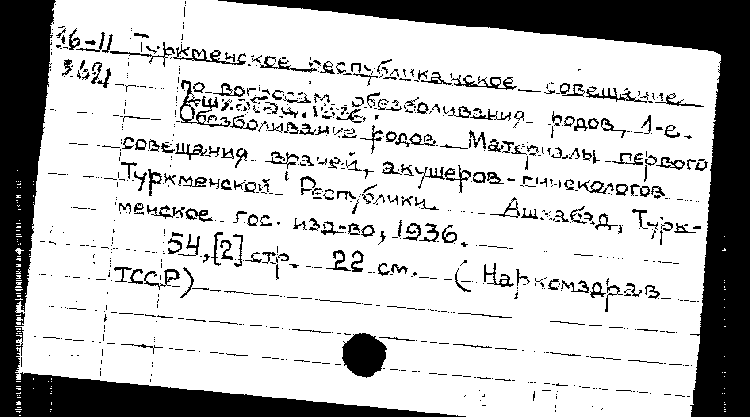 36-11 Туркменское республиканское совещание
3621 по вопросам обезболивания родов, 1-е.
Ашхабад. 1936.
Обезболивание родов. Материалы первого
совещания врачей, акушеров-гинекологов
Туркменской Республики. Ашхабад, Турк-
менское гос. изд-во, 1936.
54, [2] стр. 22 см. (Наркомздрав
ТССР)